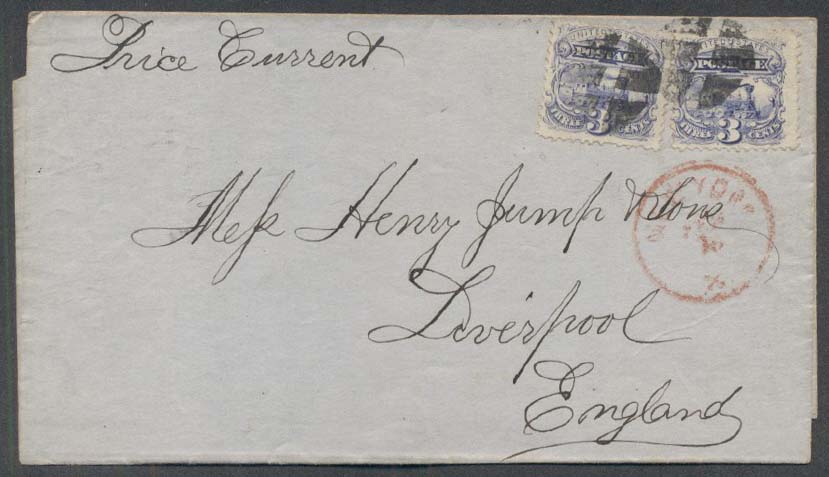 Price Current
UNITED STATES
POSTAGE
THREE 3 CENTS
UNITED STATES
POSTAGE
THREE 3 CENTS
Messr Henry Jump & Sons
Liverpool
England